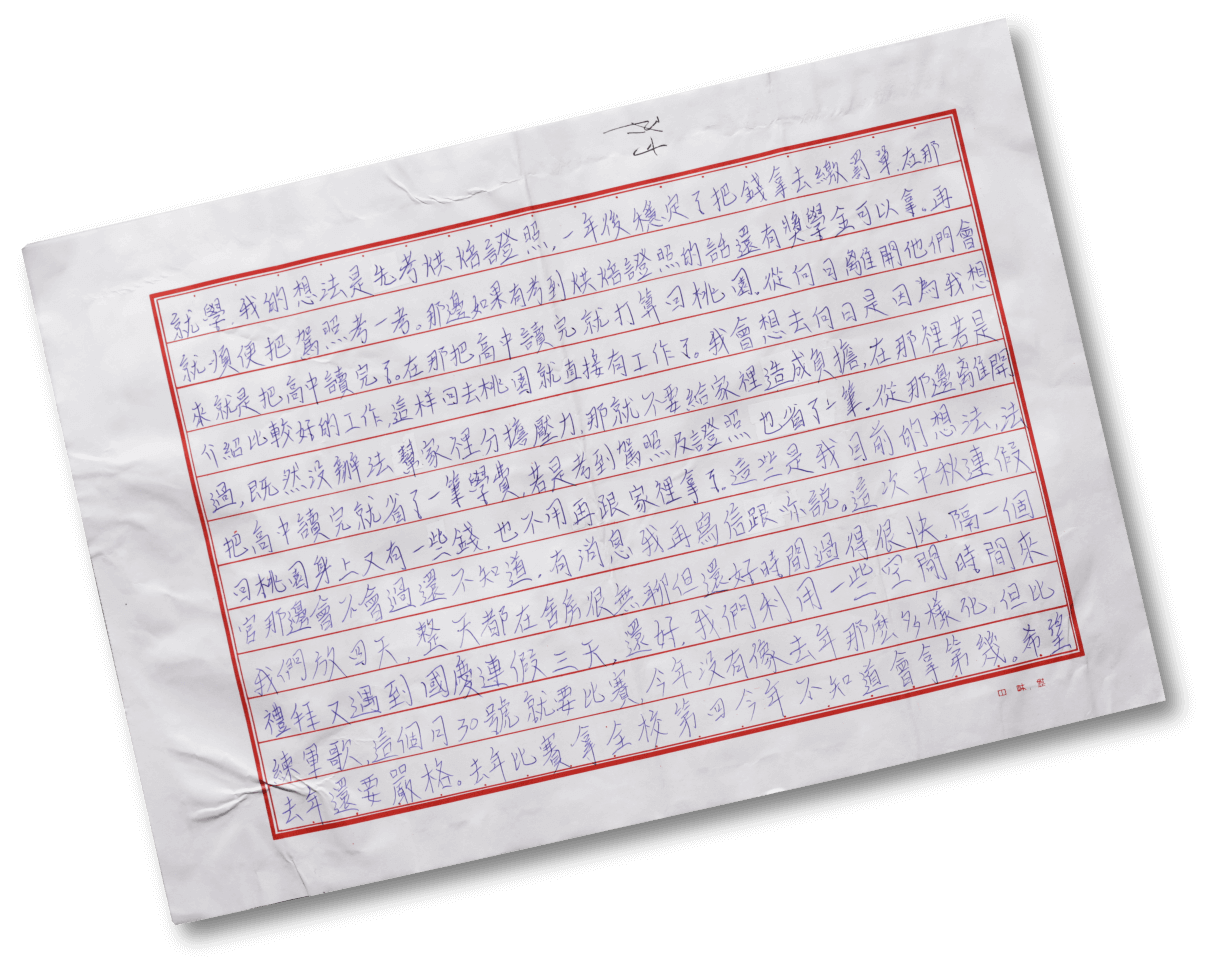 就學.我的想法是先考烘焙證照,一年後穩定了把錢拿去繳罰單.在那
就順便把駕照考一考。那邊如果有考到烘焙證照的話還有獎學金可以拿。再
來就是把高中讀完了。在那把高中讀完就打算回桃園.從向日離開他們會
介紹比較好的工作,這樣回去桃園就直接有工作了。我會想去向日是因為我想
過,既然沒辦法幫家裡分擔壓力,那就不要給家裡造成負擔,在那裡若是
把高中讀完就省了一筆學費,若是考到駕照及證照也省了一筆。從那邊離開
回桃園身上又有一些錢.也不用再跟家裡拿了。這些是我目前的想法,法
官那邊會不會過還不知道.有消息我再寫信跟你說。這次中秋連假
我們放四天.整天都在舍房很無聊但還好時間過得很快.隔一個
禮拜又遇到國慶連假三天.還好.我們利用一些空閒時間來
練軍歌,這個月30號就要比賽,今年沒有像去年那麼多樣化,但比
去年還要嚴格。去年比賽拿全校第四今年不知道會拿第幾。希望